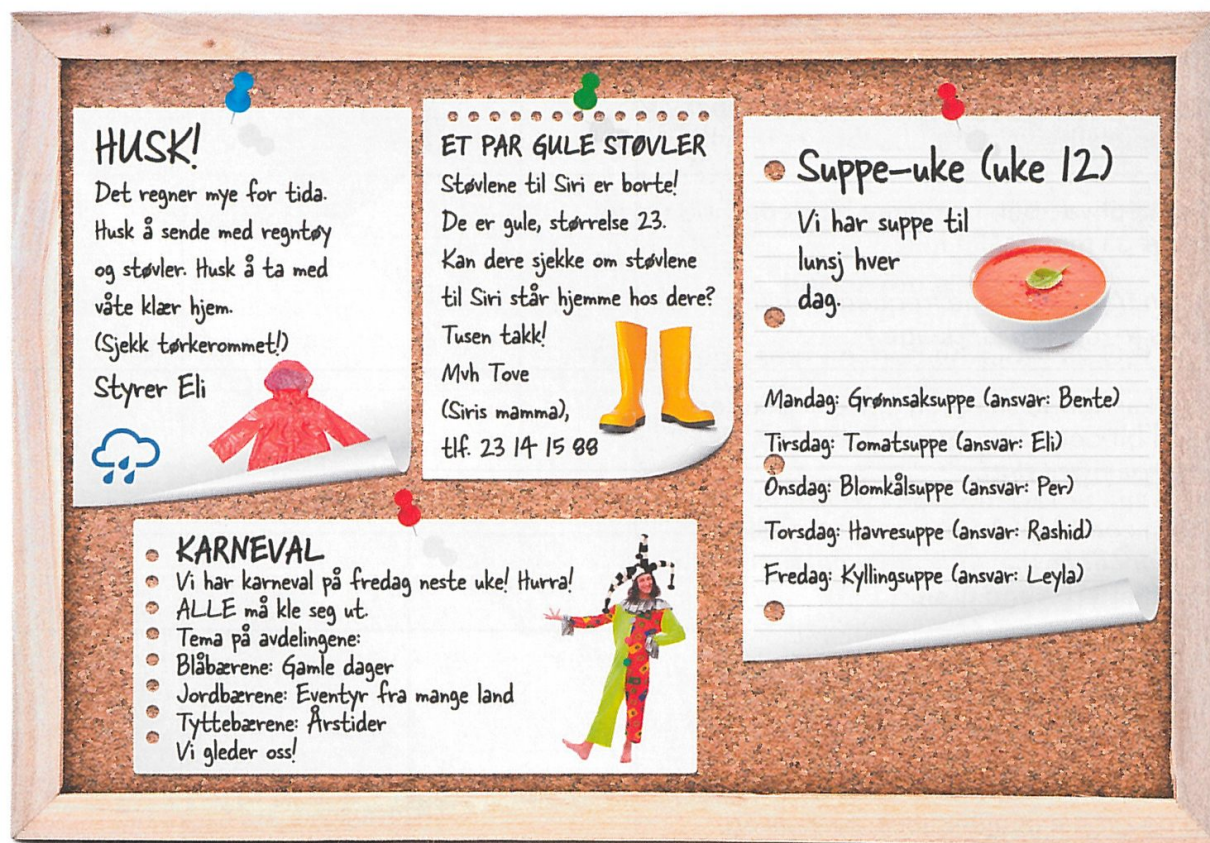 HUSK!
Det regner mye for tida.
Husk å sende med regntøy
og støvler. Husk å ta med
våte klær hjem.
(Sjekk tørkerommet!)
Styrer Eli
ET PAR GULE STØVLER
Støvlene til Siri er borte!
De er gule, størrelse 23.
Kan dere sjekke om støvlene
til Siri står hjemme hos dere?
Tusen takk!
Mvh Tove
(Siris mamma),
tlf. 23 14 15 88
Suppe-uke (uke 12)
Vi har suppe til
lunsj hver
dag.
Mandag: Grønnsaksuppe (ansvar: Bente)
Tirsdag: Tomatsuppe (ansvar: Eli)
Onsdag: Blomkålsuppe (ansvar: Per)
Torsdag: Havresuppe (ansvar: Rashid)
Fredag: Kyllingsuppe (ansvar: Leyla)
KARNEVAL
Vi har karneval på fredag neste uke! Hurra!
ALLE må kle seg ut.
Tema på avdelingene:
Blåbærene: Gamle dager
Jordbærene: Eventyr fra mange land
Tyttebærene: Årstider
Vi gleder oss!